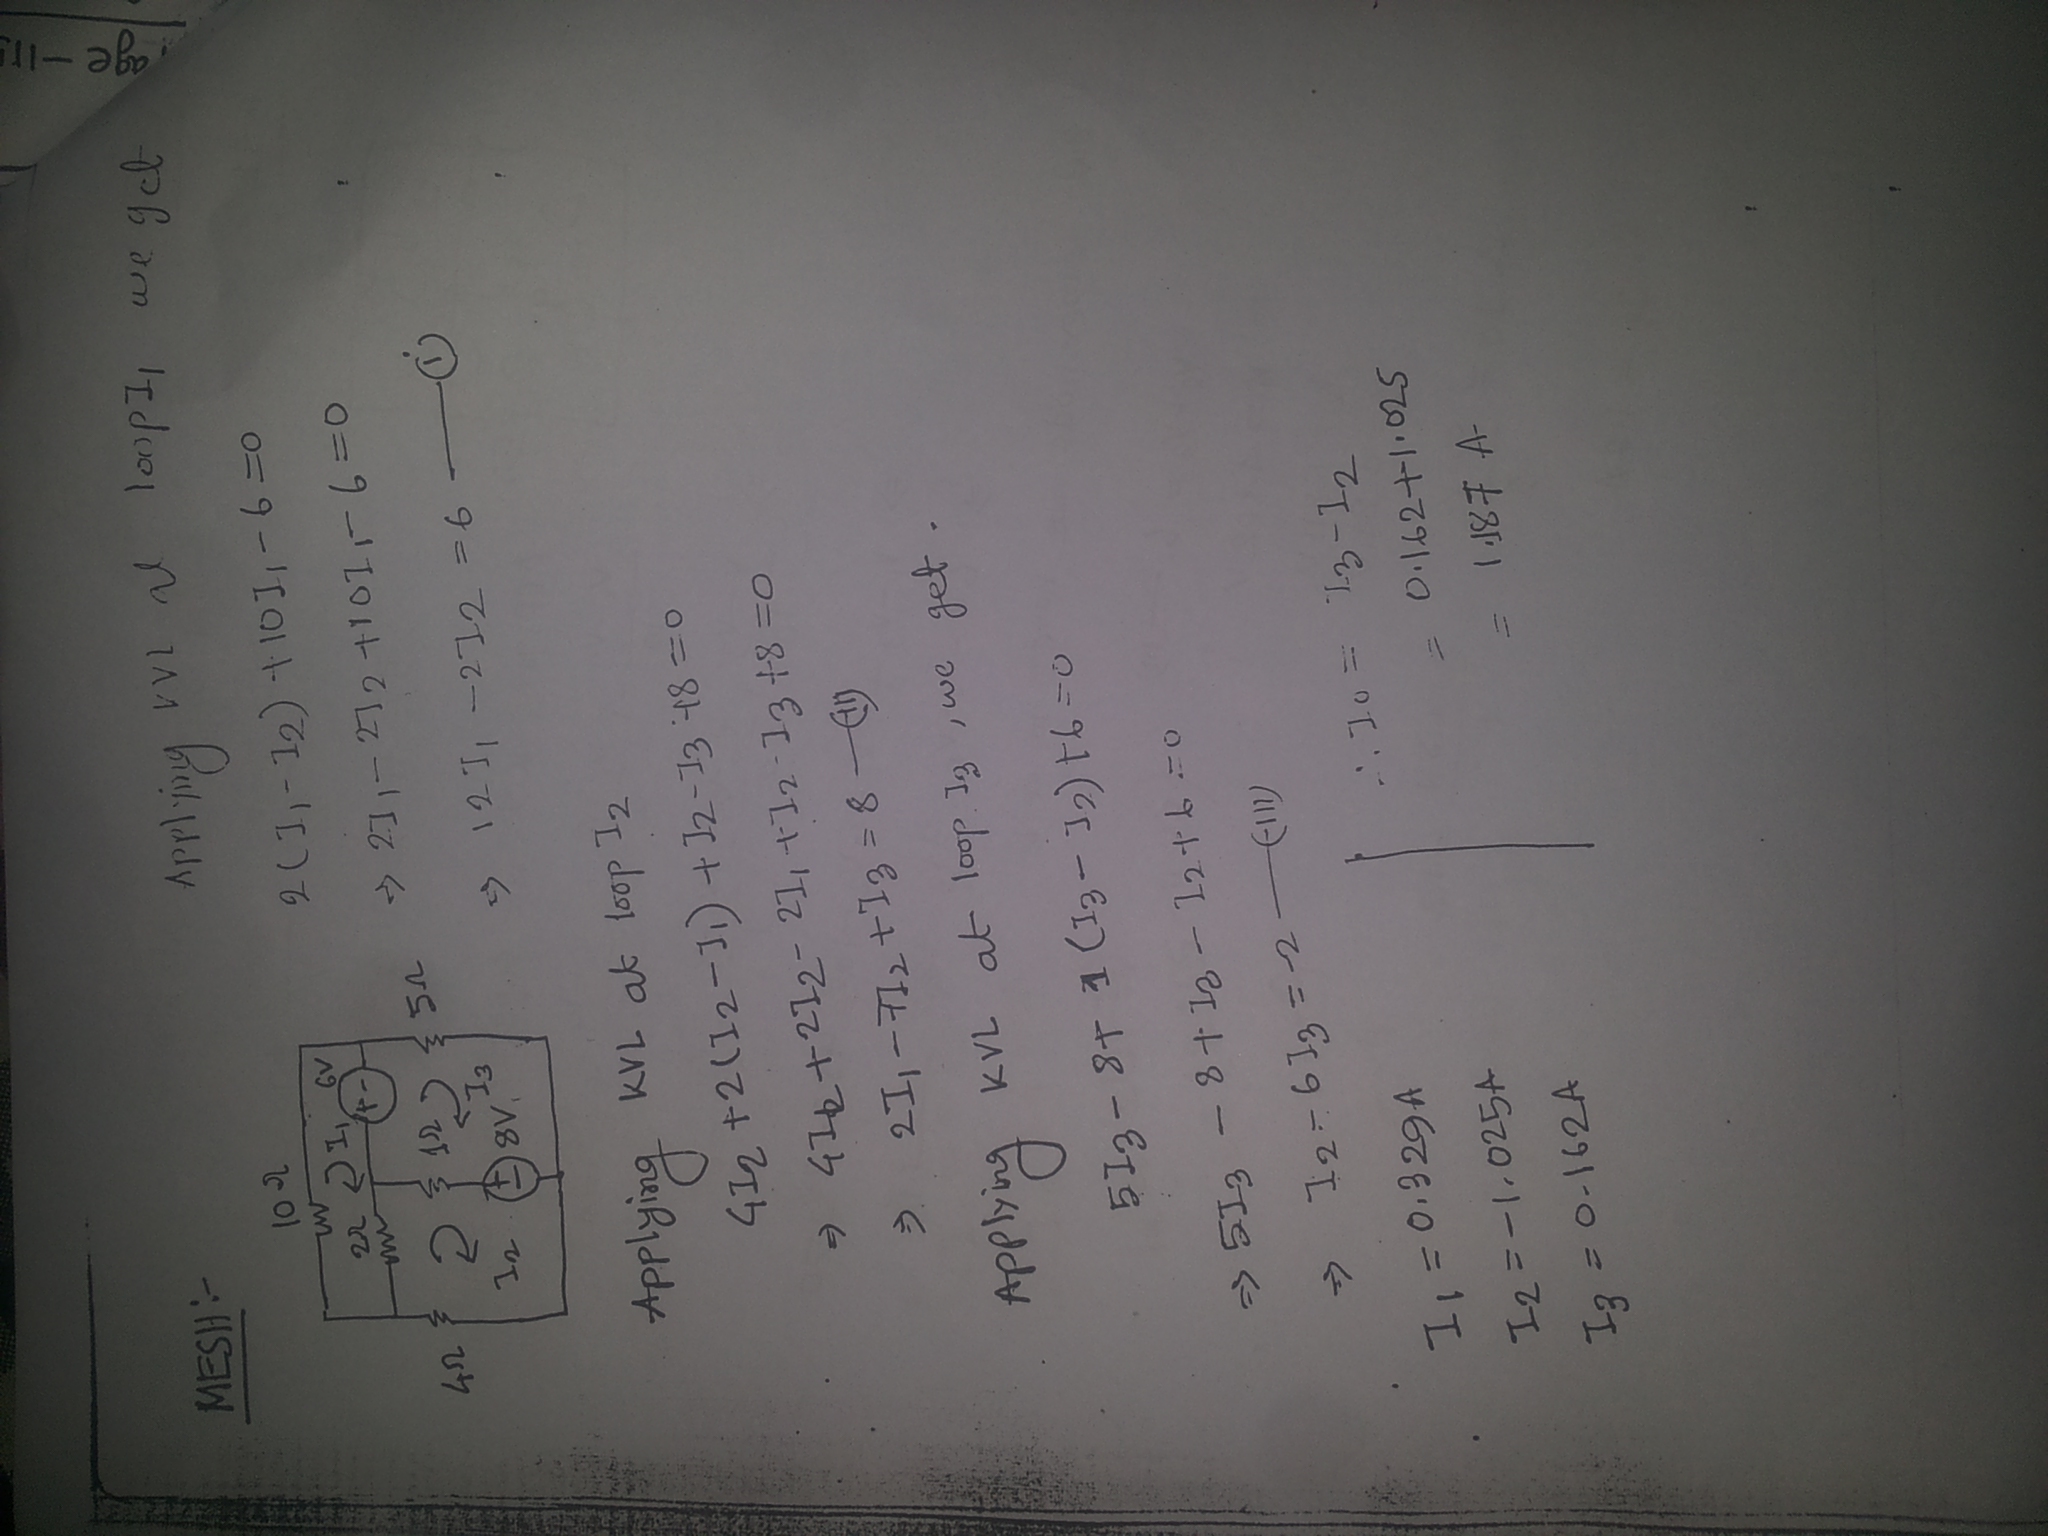 age -115
MESH:-
10Ω
I1
6V
2Ω
+ -
4Ω
1Ω
5Ω
I2
8V
I3
Applying KVL at loop I1 we get
2(I1-I2)+10I1-6=0
⇒ 2I1-2I2+10I1-6=0
⇒ 12I1-2I2=6 — (i)
Applying KVL at loop I2
4I2+2(I2-I1)+I2-I3+8=0
⇒ 4I2+2I2-2I1+I2-I3+8=0
⇒ 2I1-7I2+I3=8 — (ii)
Applying KVL at loop I3, we get.
5I3-8+1(I3-I2)+6=0
⇒ 5I3-8+I3-I2+6=0
⇒ I2-6I3=-2 — (iii)
I1=0.329A
I2=-1.025A
I3=0.162A
∴ I0 = I3-I2
= 0.162+1.025
= 1.187 A